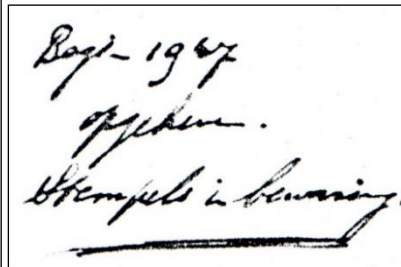 Begin 1947
opgeheven.
Stempels in bewaring.